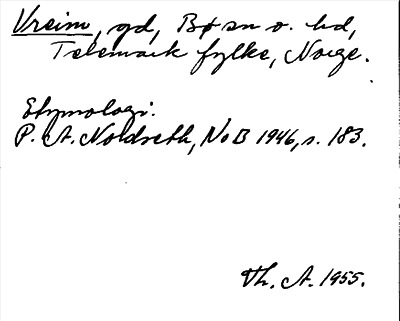 Vreim, gd, Bø sn o. hd,
Telemark fylke, Norge.
Etymologi:
P. A. Noldseth, NoB 1946, s. 183.
Th. A. 1955.